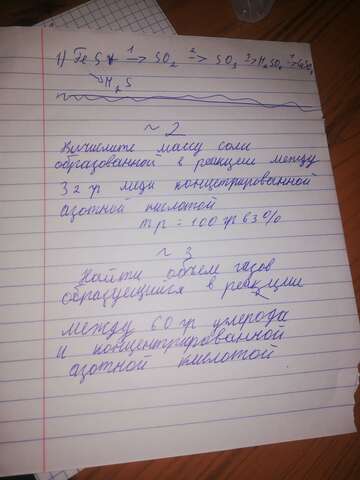 1) FeS 1-> SO2 2-> SO3 3-> H2SO4 4->
H2S
~ 2
Вычислите массу соли
образованной в реакции между
32 гр меди концетрированной
азотной кислотой
mр = 100 гр 63%
~ 3
Найти объем газов
образующийся в реакции
между 60 гр углерода
и концентрированной
азотной кислотой